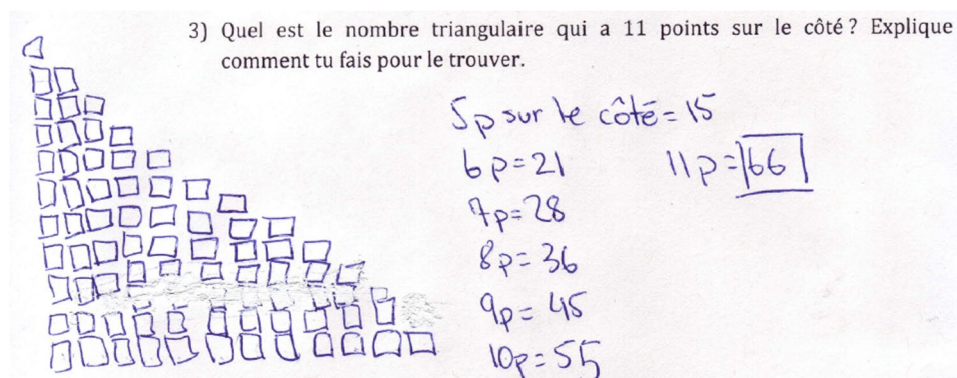 3) Quel est le nombre triangulaire qui a 11 points sur le côté ? Explique
comment tu fais pour le trouver.
5p sur le côté = 15
6p = 21
11p = 66
7p = 28
8p = 36
9p = 45
10p = 55